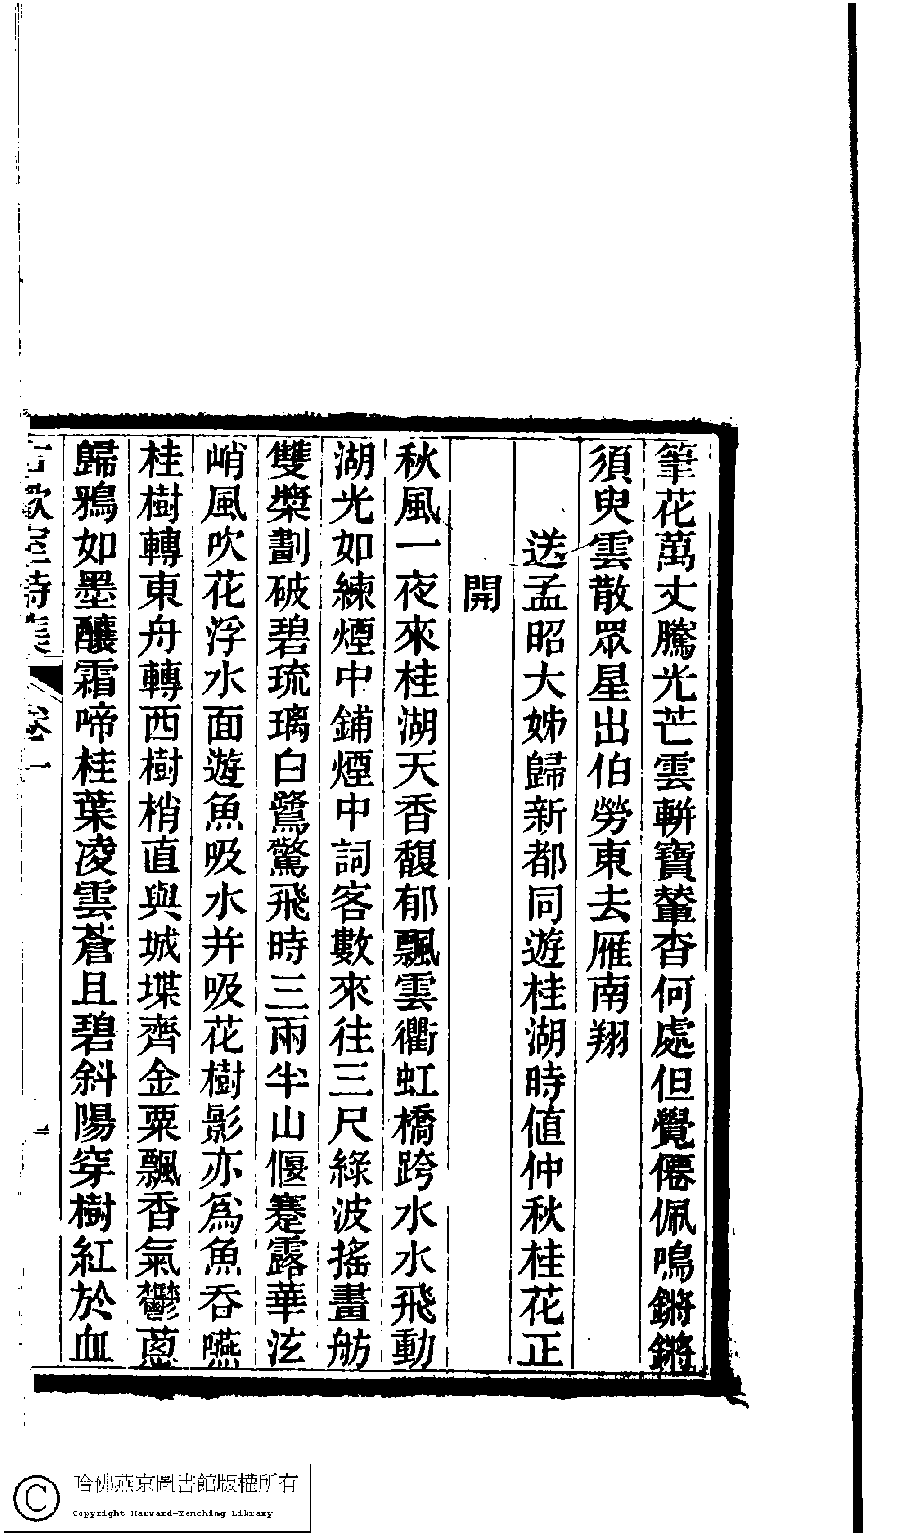 筆花萬丈騰光芒雲軿寶輦杳何處但覺僊佩鳴鏘鏘
須臾雲散眾星出伯勞東去雁南翔
送孟昭大姊歸新都同遊桂湖時值仲秋桂花正
開
秋風一夜來桂湖天香馥郁飄雲衢虹橋跨水水飛動
湖光如練煙中鋪煙中詞客數來往三尺綠波搖畫舫
雙槳劃破碧琉璃白鷺驚飛時三兩半山偃蹇露華泫
峭風吹花浮水面遊魚吸水并吸花樹影亦為魚吞嚥
桂樹轉東舟轉西樹梢直與城堞齊金粟飄香氣鬱蔥
歸鴉如墨釀霜啼桂葉凌雲蒼且碧斜陽穿樹紅於血
哈佛燕京圖書館版權所有
Copyright Harvard-Yenching Library